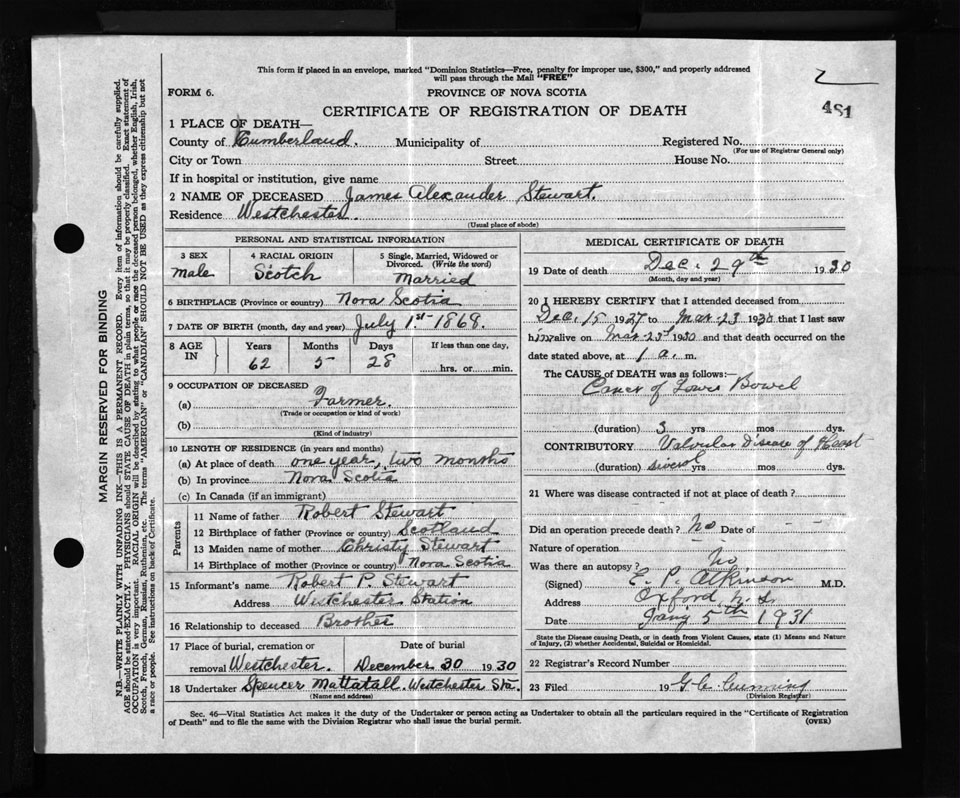 This form if placed in an envelope, marked "Dominion Statistics—Free, penalty for improper use, $300," and properly addressed
will pass through the Mail "FREE"
2
FORM 6.
PROVINCE OF NOVA SCOTIA
481
CERTIFICATE OF REGISTRATION OF DEATH
1 PLACE OF DEATH—
County of Cumberland. Municipality of Registered No.
(For use of Registrar General only)
City or Town Street House No.
If in hospital or institution, give name
2 NAME OF DECEASED James Alexander Stewart.
Residence Westchester.
(Usual place of abode)
PERSONAL AND STATISTICAL INFORMATION
3 SEX male
4 RACIAL ORIGIN Scotch
5 Single, Married, Widowed or
Divorced. (Write the word)
Married
6 BIRTHPLACE (Province or country) Nova Scotia
7 DATE OF BIRTH (month, day and year) July 1st 1868.
8 AGE IN Years Months Days If less than one day,
62 5 28 hrs. or min.
9 OCCUPATION OF DECEASED
(a) Farmer.
(Trade or occupation or kind of work)
(b)
(Kind of industry)
10 LENGTH OF RESIDENCE (in years and months)
(a) At place of death one year, two months
(b) In province Nova Scotia
(c) In Canada (if an immigrant)
Parents
11 Name of father Robert Stewart
12 Birthplace of father (Province or country) Scotland
13 Maiden name of mother Christy Stewart
14 Birthplace of mother (Province or country) Nova Scotia
15 Informant's name Robert P. Stewart
Address Westchester Station
16 Relationship to deceased Brother
17 Place of burial, cremation or Date of burial
removal Westchester. December 30 1930
18 Undertaker Spencer Mattatall. Westchester Sta.
(Name and address)
MEDICAL CERTIFICATE OF DEATH
19 Date of death Dec. 29th 1930
(Month, day and year)
20 I HEREBY CERTIFY that I attended deceased from
Dec. 15 1927 to Mar 23 1930 that I last saw
him alive on Mar 23rd 1930 and that death occurred on the
date stated above, at 1 a. m.
The CAUSE of DEATH was as follows:—
Cancer of Lower Bowel
(duration) 3 yrs mos dys.
CONTRIBUTORY Valvular Disease of Heart
(duration) several yrs mos. dys.
21 Where was disease contracted if not at place of death?
Did an operation precede death? No Date of
Nature of operation
Was there an autopsy? No
(Signed) E. P. Atkinson M.D.
Address Oxford, N.S.
Date Jan'y 5th 1931
State the Disease causing Death, or in death from Violent Causes, state (1) Means and Nature
of Injury, (2) whether Accidental, Suicidal or Homicidal.
22 Registrar's Record Number
23 Filed 19
(Division Registrar)
Sec. 46—Vital Statistics Act makes it the duty of the Undertaker or person acting as Undertaker to obtain all the particulars required in the "Certificate of Registration
of Death" and to file the same with the Division Registrar who shall issue the burial permit.
(OVER)
MARGIN RESERVED FOR BINDING
N.B.—WRITE PLAINLY WITH UNFADING INK—THIS IS A PERMANENT RECORD. Every item of information should be carefully supplied.
AGE should be stated EXACTLY. PHYSICIANS should STATE CAUSE OF DEATH in plain terms, so that it may be properly classified. Exact statement of
OCCUPATION is very important. RACIAL ORIGIN will be described by stating to what people or race the deceased person belonged, whether English, Irish,
Scotch, French, German, Russian, Ruthenian, etc. The terms "AMERICAN" or "CANADIAN" SHOULD NOT BE USED as they express citizenship but not
a race or people. See instructions on back of Certificate.